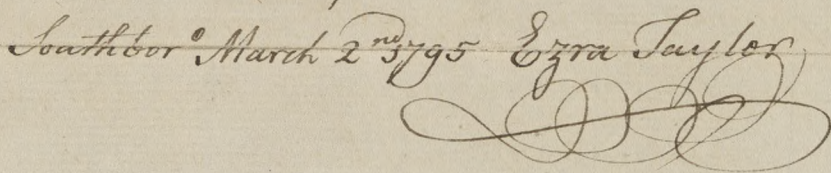 Southbor⁰ March 2ⁿᵈ 1795 Ezra Taylor